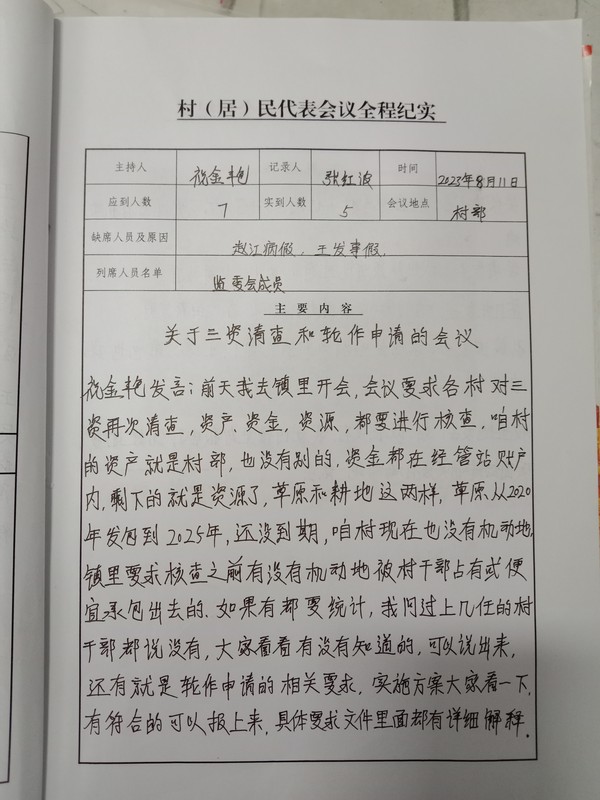 村（居）民代表会议全程纪实
主持人 祝金艳 记录人 张红波 时间 2023年8月11日
应到人数 7 实到人数 5 会议地点 村部
缺席人员及原因 赵江病假、王发事假.
列席人员名单 监委会成员
主要内容
关于三资清查和轮作申请的会议
祝金艳发言：前天我去镇里开会,会议要求各村对三
资再次清查,资产、资金、资源,都要进行核查,咱村
的资产就是村部,也没有别的,资金都在经管站账户
内,剩下的就是资源了,草原和耕地这两样,草原从2020
年发包到2025年,还没到期,咱村现在也没有机动地,
镇里要求核查之前有没有机动地被村干部占有或便
宜承包出去的.如果有都要统计,我问过上几任的村
干部都说没有,大家看看有没有知道的,可以说出来,
还有就是轮作申请的相关要求,实施方案大家看一下,
有符合的可以报上来,具体要求文件里面都有详细解释.